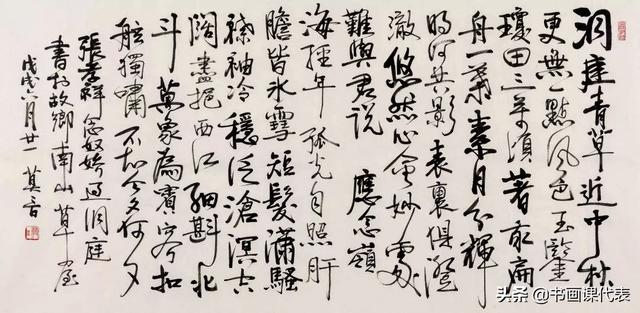 洞庭青草近中秋
更無一點風色玉鑒
瓊田三万頃著我扁
舟一葉素月分輝
明河共影表裏俱澄
澈悠然心會妙處
難與君說 應念嶺
海經年孤光自照肝
膽皆冰雪短髮瀟騷
襟袖冷穩泛滄溟空
闊盡挹西江細斟北
斗萬象為賓客扣
舷獨嘯不知今夕何夕
張孝祥念奴嬌過洞庭
書於故鄉南山草堂
戊戌六月廿一 莫言
头条 @书画课代表